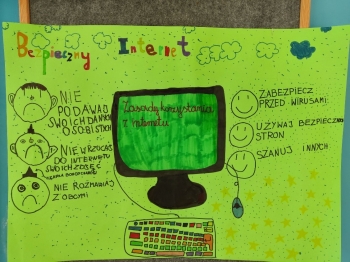 Bezpieczny Internet
NIE
PODAWAJ
SWOICH DANYCH
OSOBISTYCH
NIE WRZUCAJ
DO INTERNETU
SWOICH ZDJĘĆ
NIE ROZMAWIAJ
Z OBCYMI
Zasady korzystania
z internetu
ZABEZPIECZ
PRZED WIRUSAMI
UŻYWAJ BEZPIECZNYCH
STRON
SZANUJ INNYCH